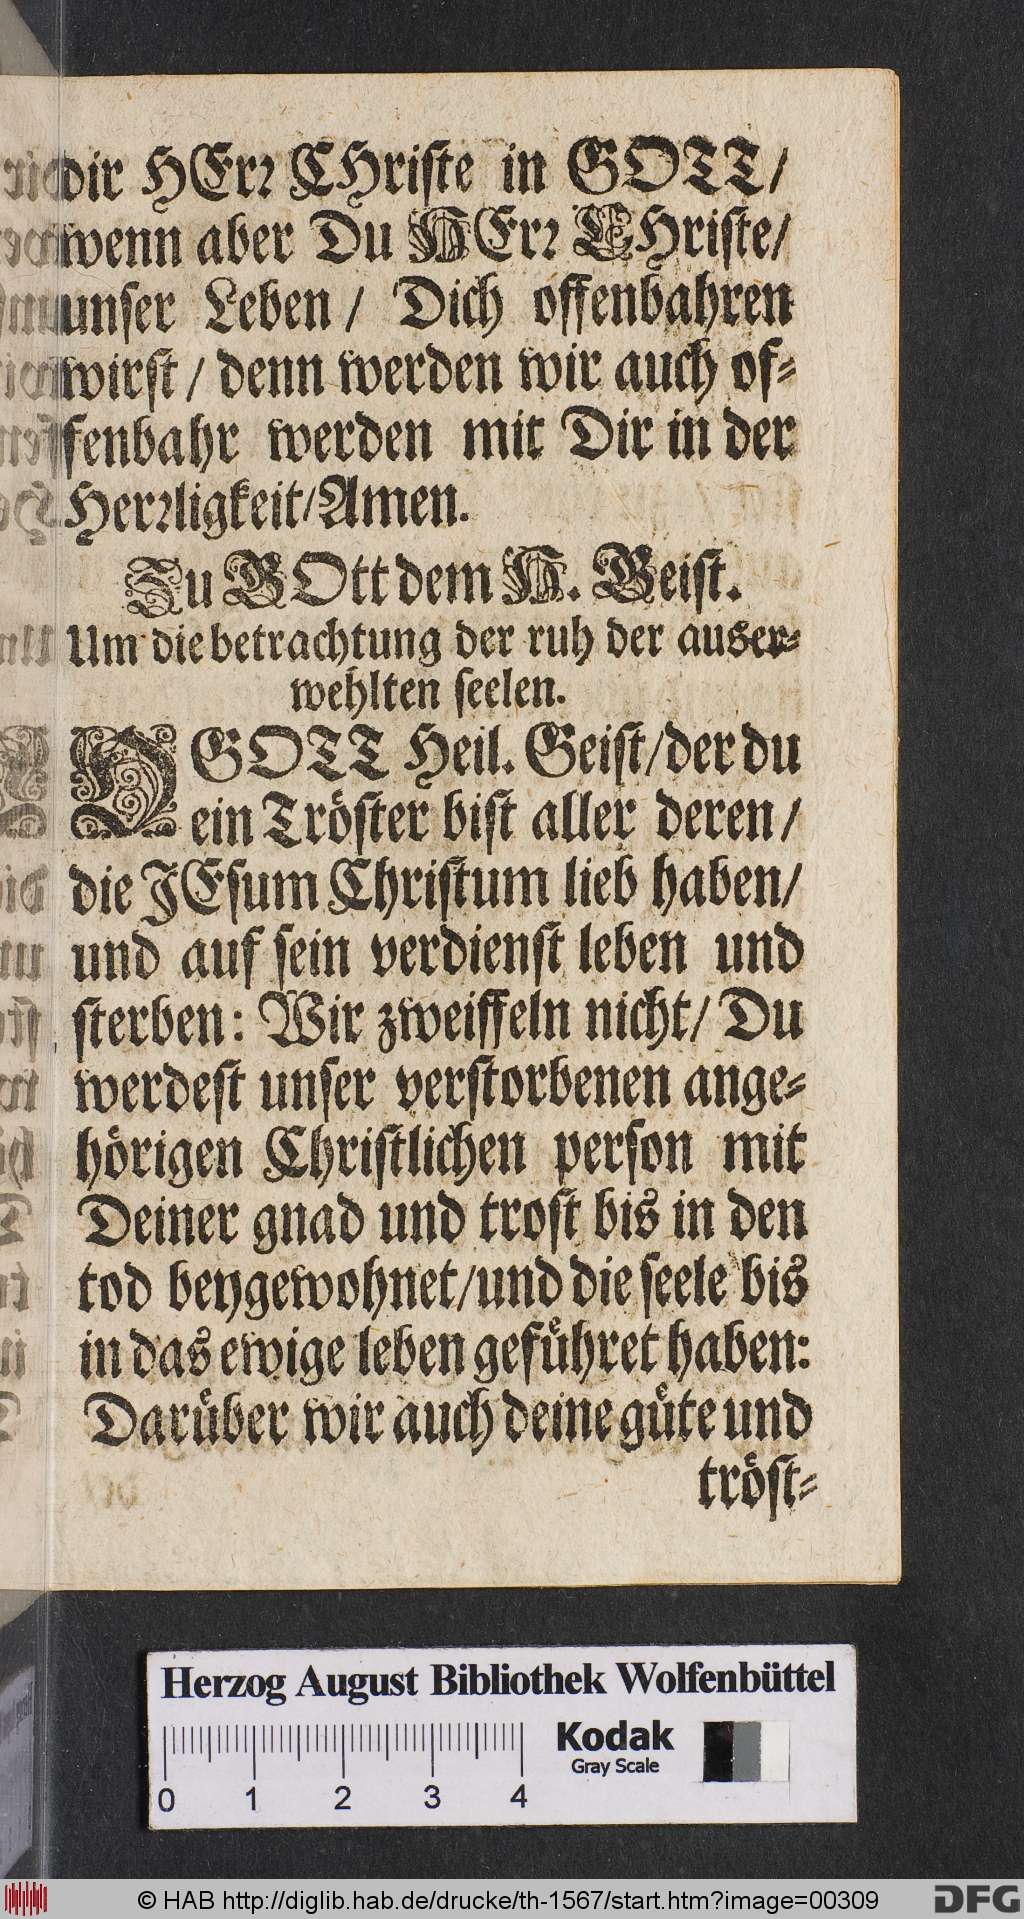 dir HErꝛ CHriste in GOTT/
wenn aber Du HErꝛ CHriste/
unser Leben / Dich offenbahren
wirst / denn werden wir auch of-
fenbahr werden mit Dir in der
Herꝛligkeit/Amen.
Zu GOtt dem H. Geist.
Um die betrachtung der ruh der auser-
wehlten seelen.
O GOTT Heil. Geist/der du
ein Tröster bist aller deren/
die JEsum Christum lieb haben/
und auf sein verdienst leben und
sterben: Wir zweiffeln nicht/ Du
werdest unser verstorbenen ange-
hörigen Christlichen person mit
Deiner gnad und trost bis in den
tod beygewohnet/und die seele bis
in das ewige leben geführet haben:
Darüber wir auch deine güte und
tröst-
Herzog August Bibliothek Wolfenbüttel
Kodak
Gray Scale
0 1 2 3 4
© HAB http://diglib.hab.de/drucke/th-1567/start.htm?image=00309
DFG